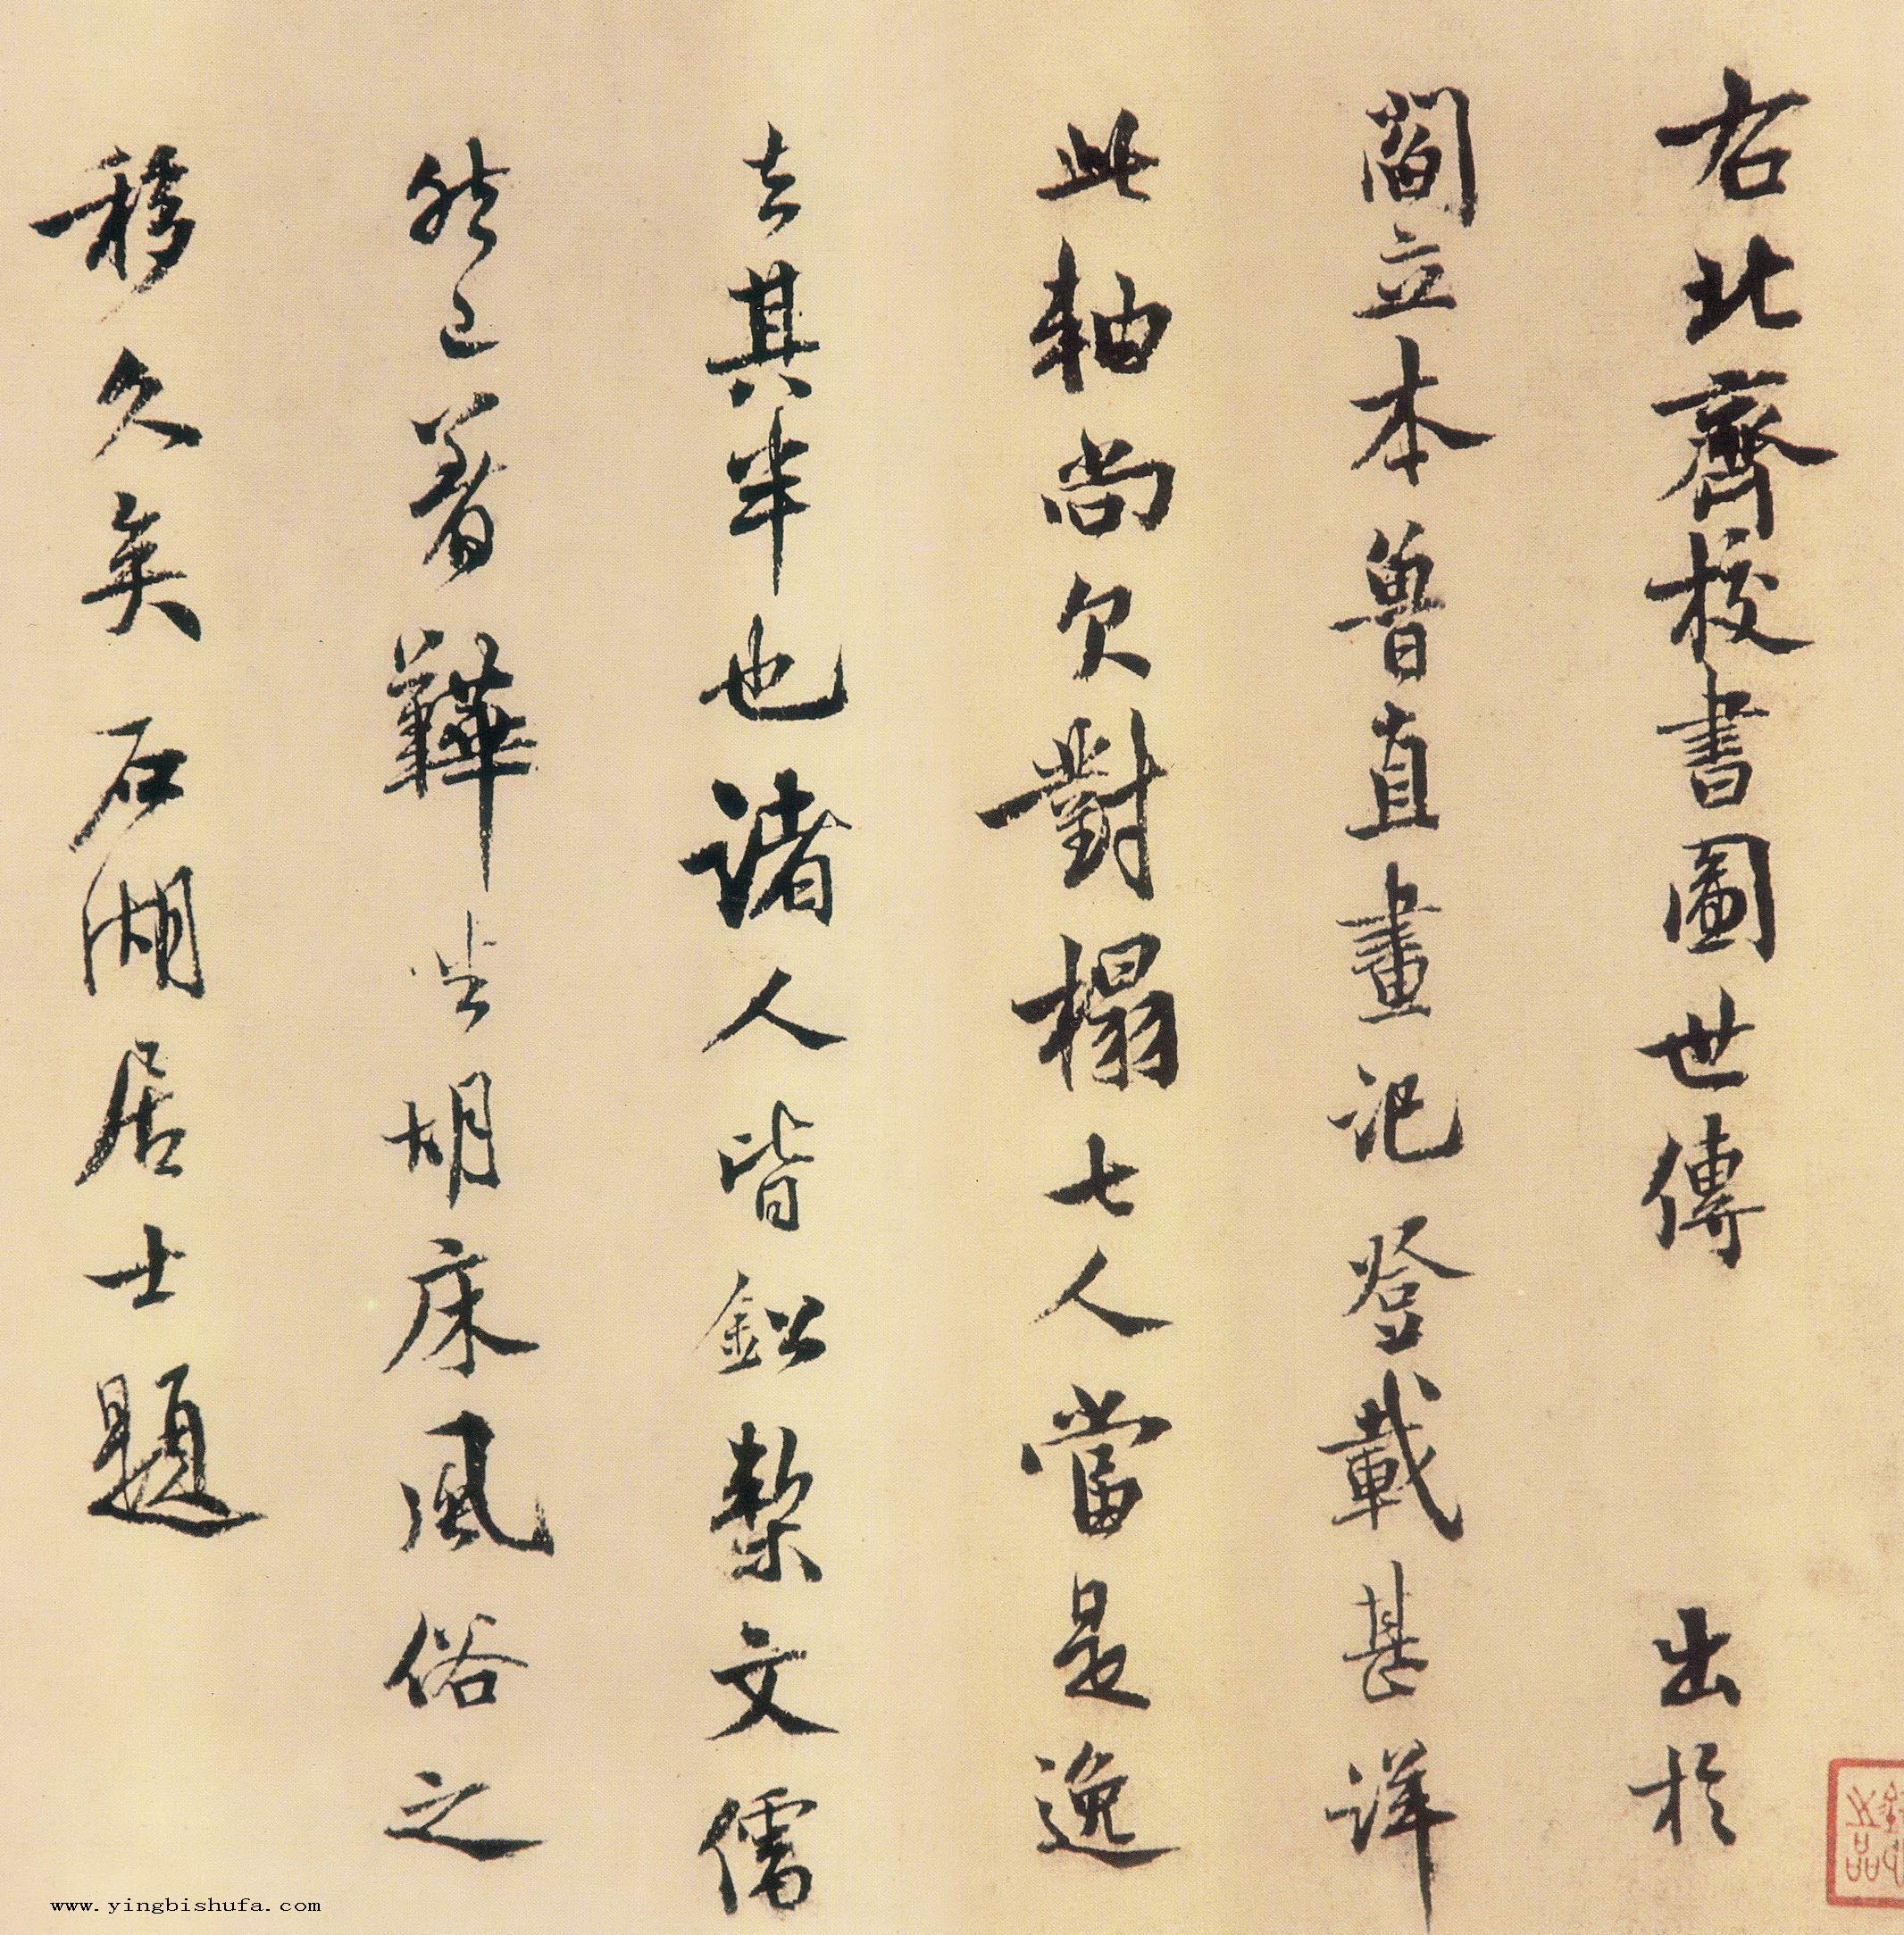 右北齊校書圖世傳出於
閻立本魯直畫記登載甚詳
此軸尚欠對榻七人當是逸
去其半也諸人皆鉛槧文儒
然已著鞾坐胡床風俗之
移久矣石湖居士題
www.yingbishufa.com